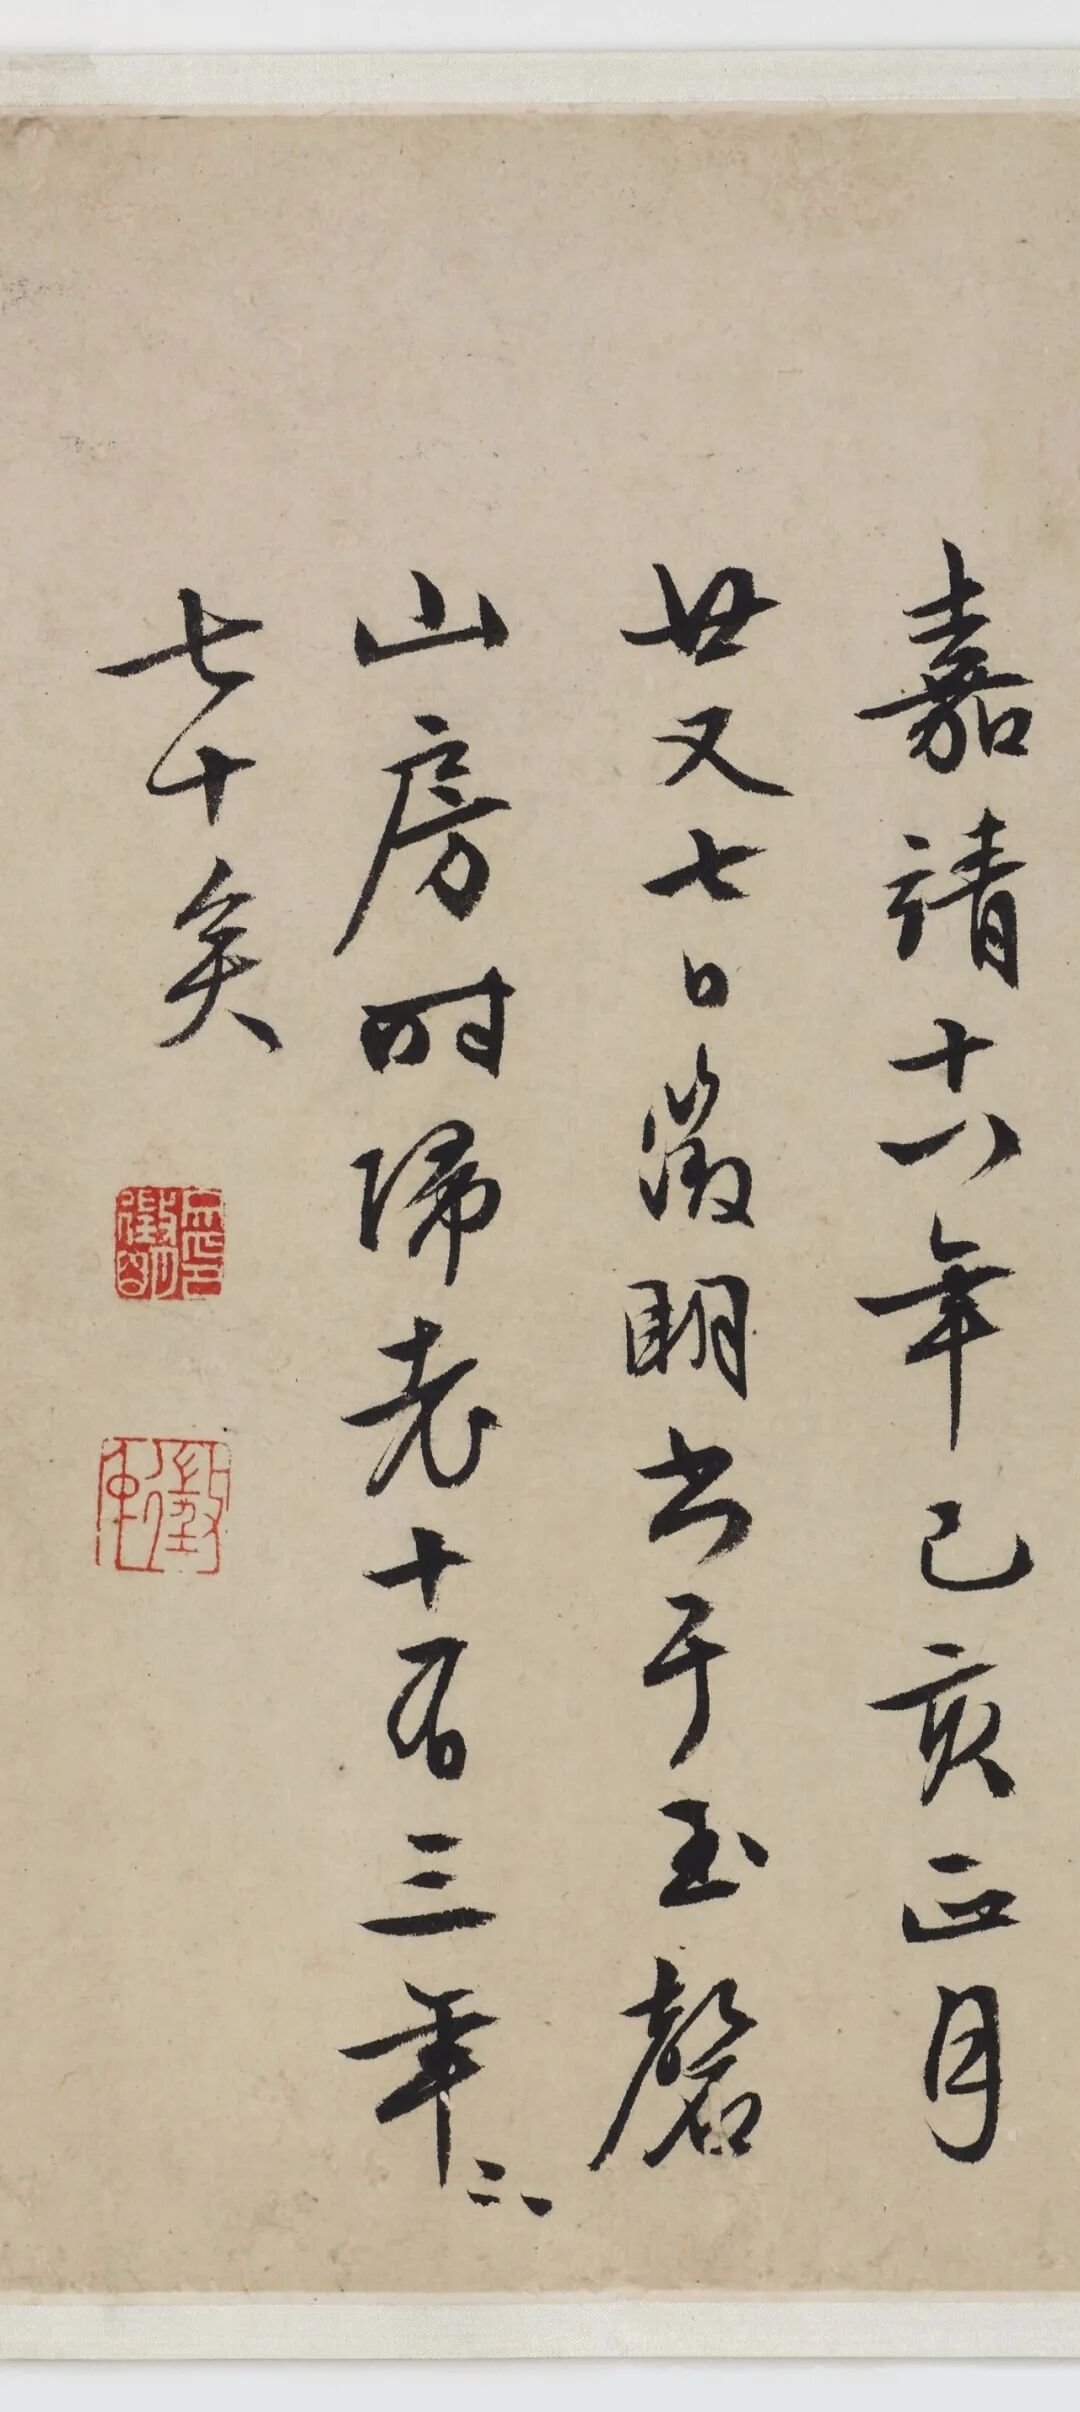 嘉靖十八年己亥正月
廿又七日徵明書于玉磬
山房時歸老十有三年〻
七十矣
徵仲